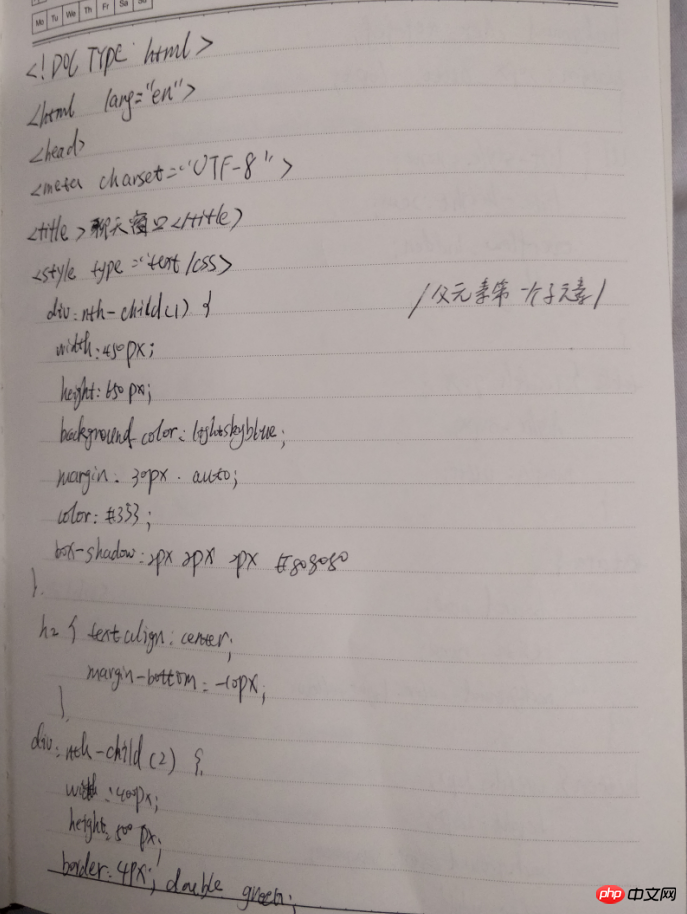 Mo Tu We Th Fr Sa Su
<!DOC TYPE html>
<html lang="en">
<head>
<meta charset="UTF-8">
<title>聊天窗口</title>
<style type="text/css>
div:nth-child(1) { /父元素第一个子元素/
width:450px;
height:650px;
background-color:lightskyblue;
margin: 30px auto;
color:#333;
box-shadow:2px 2px 2px #808080
}
h2 { text align: center;
margin-bottom:-10px;
}
div:nth-child(2) {
width:400px;
height:500px;
border:4px; double green;
php 中文网